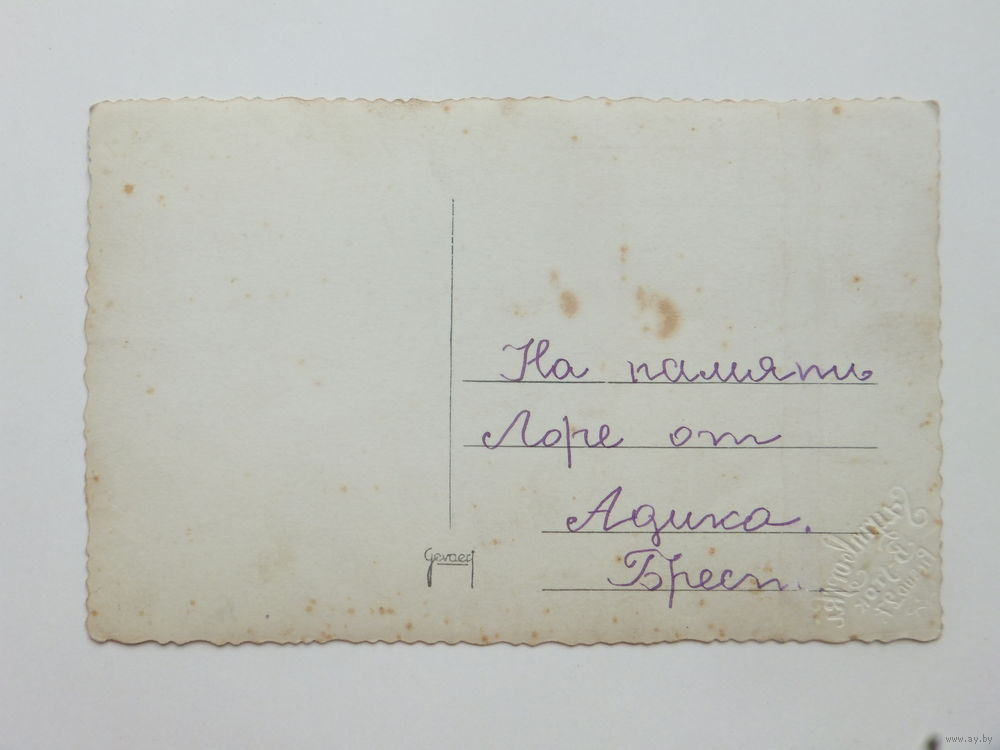 На память
Лоре от
Адика.
Брест.
Gevaert
www.ay.by